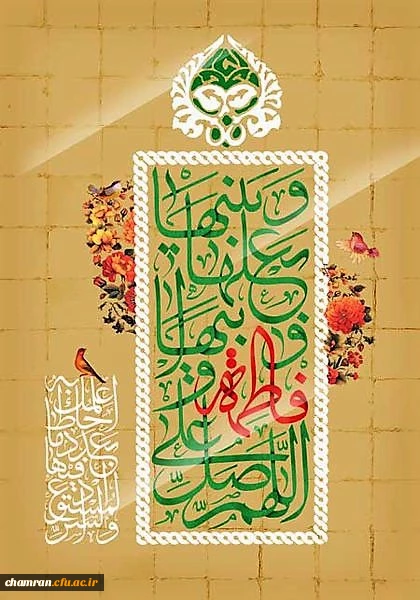 اللهم صل على
فاطمة
و ابيها
و بعلها
و بنيها
والسر
المستودع
فيها
بعدد ما
احاط به
علمك
chamran.cfu.ac.ir